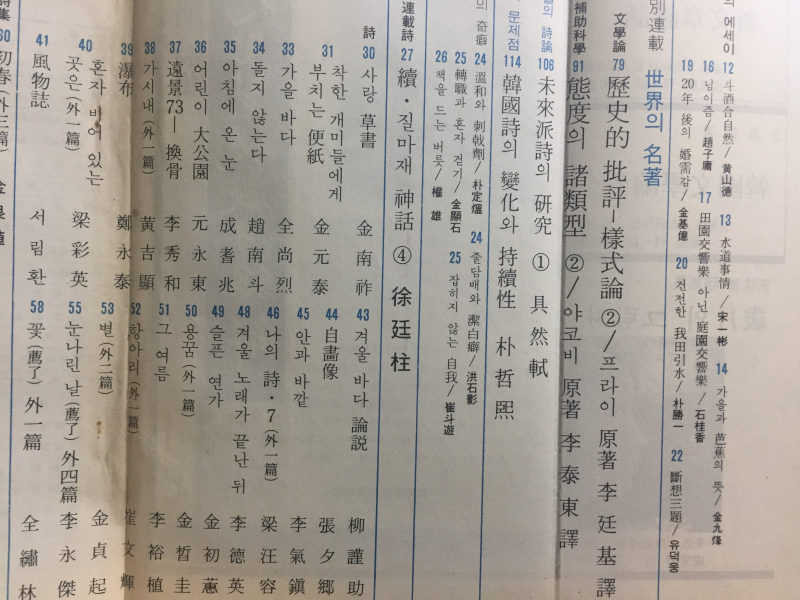 의 에세이
12 斗酒合自然/黄山德
13 水道事情/宋一彬
14 가을과 芭蕉의 뜻/金九烽
16 님이즘/趙子庸
17 田園交響樂 아닌 庭園交響樂/石桂香
19 20年 後의 婚需감/金基億
20 건전한 我田引水/朴勝一
22 斷想三題/유덕웅
別連載 世界의 名著
文學論 79 歷史的 批評–樣式論 ②/프라이 原著 李廷基 譯
補助科學 91 態度의 諸類型 ②/야코비 原著 李泰東 譯
의 詩論 106 未來派詩의 研究 ① 具然軾
問題점 114 韓國詩의 變化와 持續性 朴哲熙
의 奇癖
24 溫和와 刺戟劑/朴定熅
24 줄담배와 潔白癖/洪石影
25 轉職과 혼자 걷기/金顯石
25 잡히지 않는 自我/崔斗遊
26 책을 드는 버릇/權 雄
連載詩 27 續・질마재 神話 ④ 徐廷柱
詩
30 사랑 草書 金南祚
31 착한 개미들에게
부치는 便紙 金元泰
33 가을 바다 全尚烈
34 돌지 않는다 趙南斗
35 아침에 온 눈 成耆兆
36 어린이 大公園 元永東
37 遠景73–換骨 李秀和
38 가시내(外一篇) 黃吉顯
39 瀑布 鄭永泰
40 혼자 비어 있는
곳은(外一篇) 梁彩英
41 風物誌 서림환
43 겨울 바다 論説 柳謹助
44 自畵像 張夕鄉
45 안과 바깥 李氣鎭
46 나의 詩・7(外一篇) 梁汪容
48 겨울 노래가 끝난 뒤 李德英
49 슬픈 연가 金初蕙
50 용꿈(外一篇) 金晳圭
51 그 여름 李裕植
52 항아리(外一篇) 崔文輝
53 별(外二篇) 金貞起
55 눈나린 날(薦了) 外四篇 李永傑
58 꽃(薦了) 外一篇 全繡林
詩集
60 初春(外三篇)